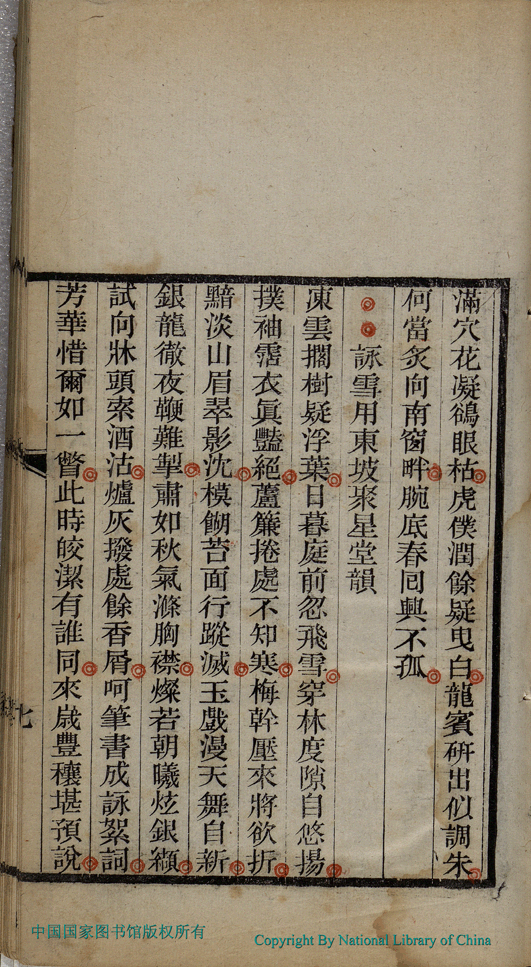 滿穴花凝鵒眼枯虎僕潤餘疑曳白龍賓硏出似調朱
何當炙向南窗畔腕底春回興不孤
詠雪用東坡聚星堂韻
凍雲擱樹疑浮葉日暮庭前忽飛雪穿林度隙自悠揚
撲袖霑衣眞豔絕蘆簾捲處不知寒梅幹壓來將欲折
黯淡山眉翠影沈模餬苔面行蹤滅玉戲漫天舞自新
銀龍徹夜鞭難掣肅如秋氣滌胸襟燦若朝曦炫銀纈
試向牀頭索酒沽爐灰撥處餘香屑呵筆書成詠絮詞
芳華惜爾如一瞥此時皎潔有誰同來歲豐穰堪預說
七
中国国家图书馆版权所有
Copyright By National Library of China